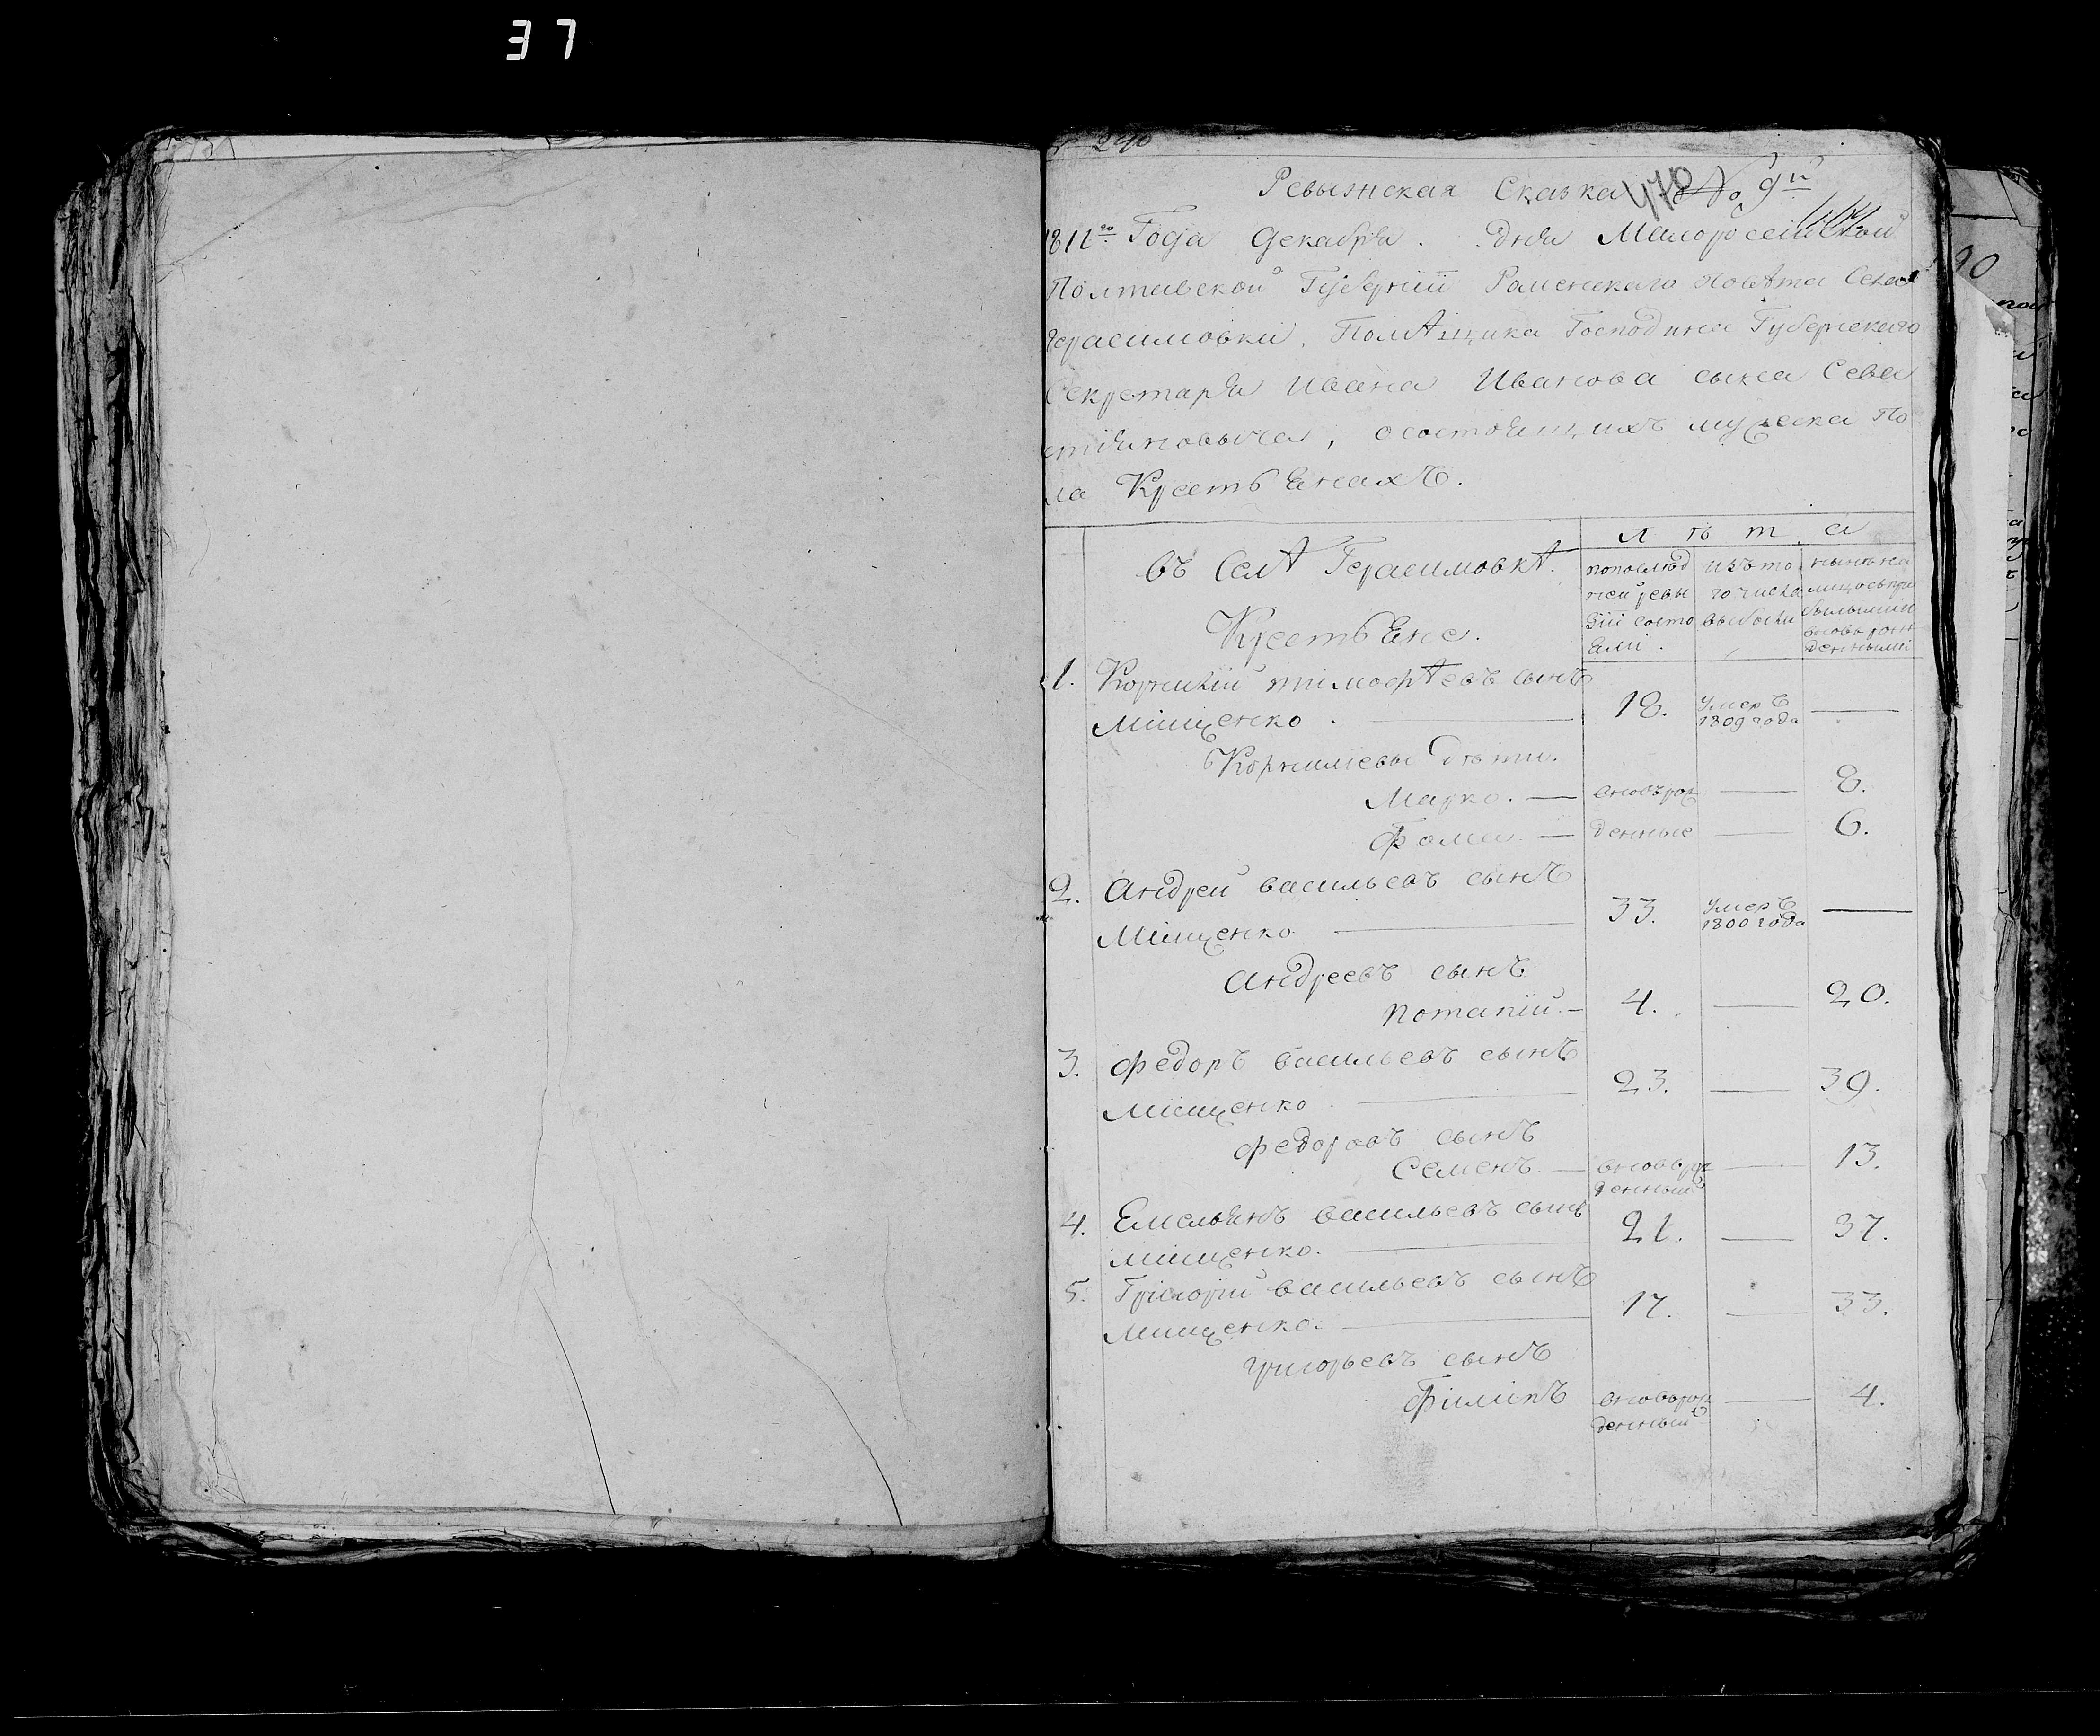 37
290
Ревызская Сказка 470 № 9й
1811го Года Декабря . Дня Малоросейской
Полтавской Губернии Роменскаго повѣта Села
Герасимовки, Помѣщика Господина Губернскаго
Секретаря Ивана Иванова сына Сева
стіяновыча, осостоящихъ мужеска По
ла Крестьянахъ.
въ Селѣ Герасимовкѣ.
Крестьяне.
Л ѣ т а
попослѣд
ней ревы
зіи состо
яли.
изъ то
го числа
выбыли
нынѣ на
лицо съпри
былыми и
вновь рож
денными
1. Корнилій тімофѣевъ сынъ
Міщенко . 18. Умеръ 1809 года —
Корнилиевы дѣти.
Марко. — вновърож — 8.
Фома. — денные — 6.
2. Андрей васильевъ сынъ
Міщенко 33. Умеръ 1800 года —
Андреевъ сынъ
Потапій. — 4. — 20.
3. Федоръ васильевъ сынъ
Міщенко 23. — 39.
Федоровъ сынъ
Семенъ. — вноворож денный — 13.
4. Емельянъ васильевъ сынъ
Міщенко. 21. — 37.
5. Грігорій васильевъ сынъ
Міщенко. 17. — 33.
Григорьевъ сынъ
Філіпъ вноворож денный — 4.
90